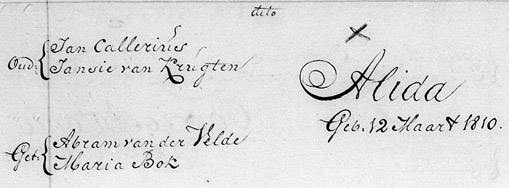 dito
Oud: Jan Callerius
Jansie van Krugten
Alida
Geb. 12 Maart 1810.
Get: Abram van der Velde
Maria Bok